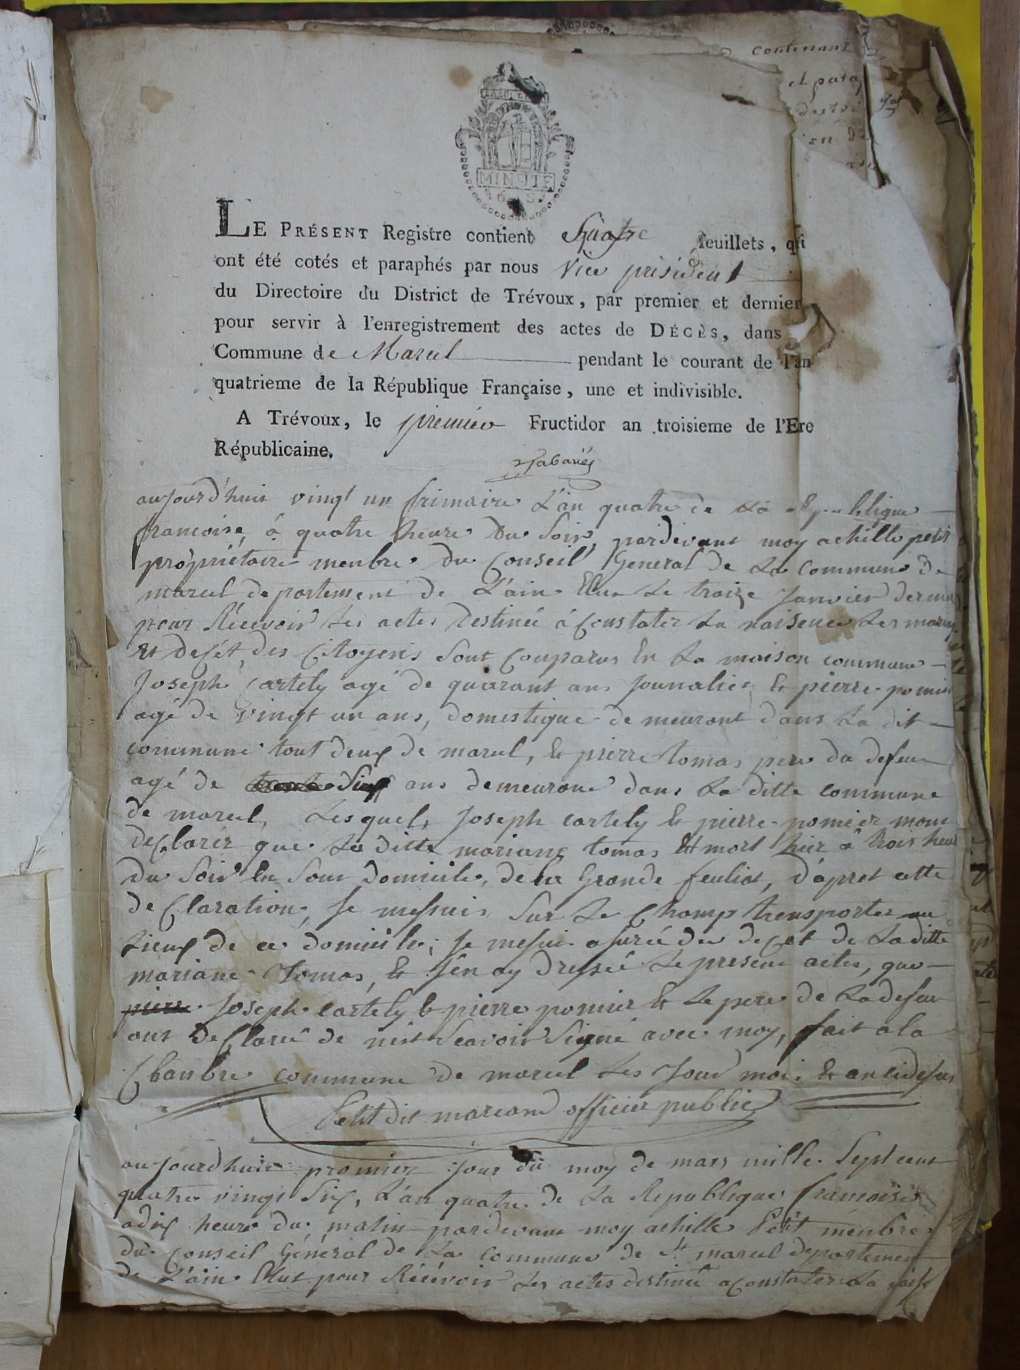 contenant
et parap
MINUTE
LE PRÉSENT Registre contient Quatre feuillets, qui
ont été cotés et paraphés par nous Vice président
du Directoire du District de Trévoux, par premier et dernier
pour servir à l'enregistrement des actes de DÉCÈS, dans
Commune de Marcel pendant le courant de l'an
quatrieme de la République Française, une et indivisible.
A Trévoux, le premier Fructidor an troisieme de l'Ere
Républicaine.
aujourd'huit vingt un frimaire L'an quatre de La Republique
francoise, à quatre heure du Soir, pardevant moy achille petit
propriétaire menbre du Conseil General de La Commune de
marcel departement de L'ain Elue Le traize Janvier dernier
pour Récevoir Les actes destinée à Constater La naisence Les mariag
Et decét des Citoyens Sont Couparus En La maison commune
Joseph Cartely agé de quarant ans Journalier & pierre pomier
agé de vingt un ans, domestique demeurant dans La dit
commune tout deux de marcel, & pierre tomas pere du defun
agé de ans demeurant dans La ditte commune
de marcel, Lesquels Joseph cartely & pierre pomier mont
déClarér que La ditte mariane tomas Est mort hier à trois heur
du Soir En Sont domicile, de la Grande feuliat, d'apret cette
déClaration, Je messuis Sur Le Champ transporter au
Lieux de ce domicile, Je messui asurée du decét de La ditte
mariane Tomas, & J'en ay Dressée Le present actes, que
pierre Joseph cartely & pierre pomier & Le pere de La defun
ont deClaré de nist Scavoir Signé avec moy, fait a la
Chanbre commune de marcel Les Jour moi & an cidesus
Petit dit marcand officier public
aujourdhuit premier Jour du moy de mars mille Sept cent
quatre vingt Six, L'an quatre de La Republique francoise
adix heure du matin pardevant moy achille Petit menbre
du Conseil Général de La commune de St marcel departement
de L'ain Elus pour Récévoir Les actes destinée a Constater La naise